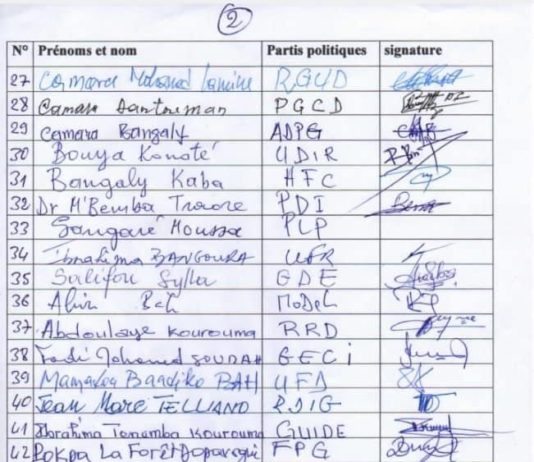 2
N° Prénoms et nom Partis politiques signature
27 Camara Mohamed Lamine RGUD
28 Camara Dantouman PGCD
29 Camara Bangaly ADPG
30 Bouya Konaté UDIR
31 Bangaly Kaba HFC
32 Dr M'Bemba Traore PDI
33 Sangaré Moussa PLP
34 Ibrahima BANGOURA UFR
35 Salifou Sylla GDE
36 Bah MoDeL
37 Abdoulaye Kourouma RRD
38 Mohamed SOUMAH GECI
39 Mamadou Baadiko BAH UFD
40 Jean Marc TELLIANO RDIG
41 Ibrahima Tamamba Kourouma GUIDE
42 La Forêt FPG